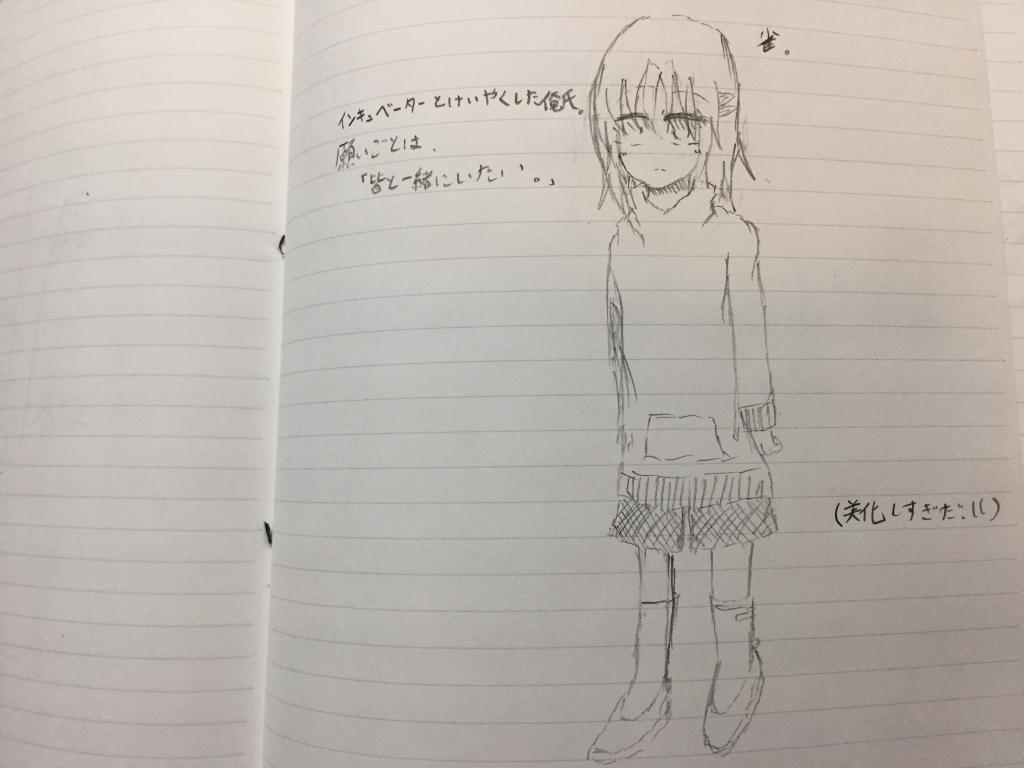 雀。
インキュベーターとけいやくした俺氏。
願いごとは、
「皆と一緒にいたい。」
(美化しすぎだ!!)